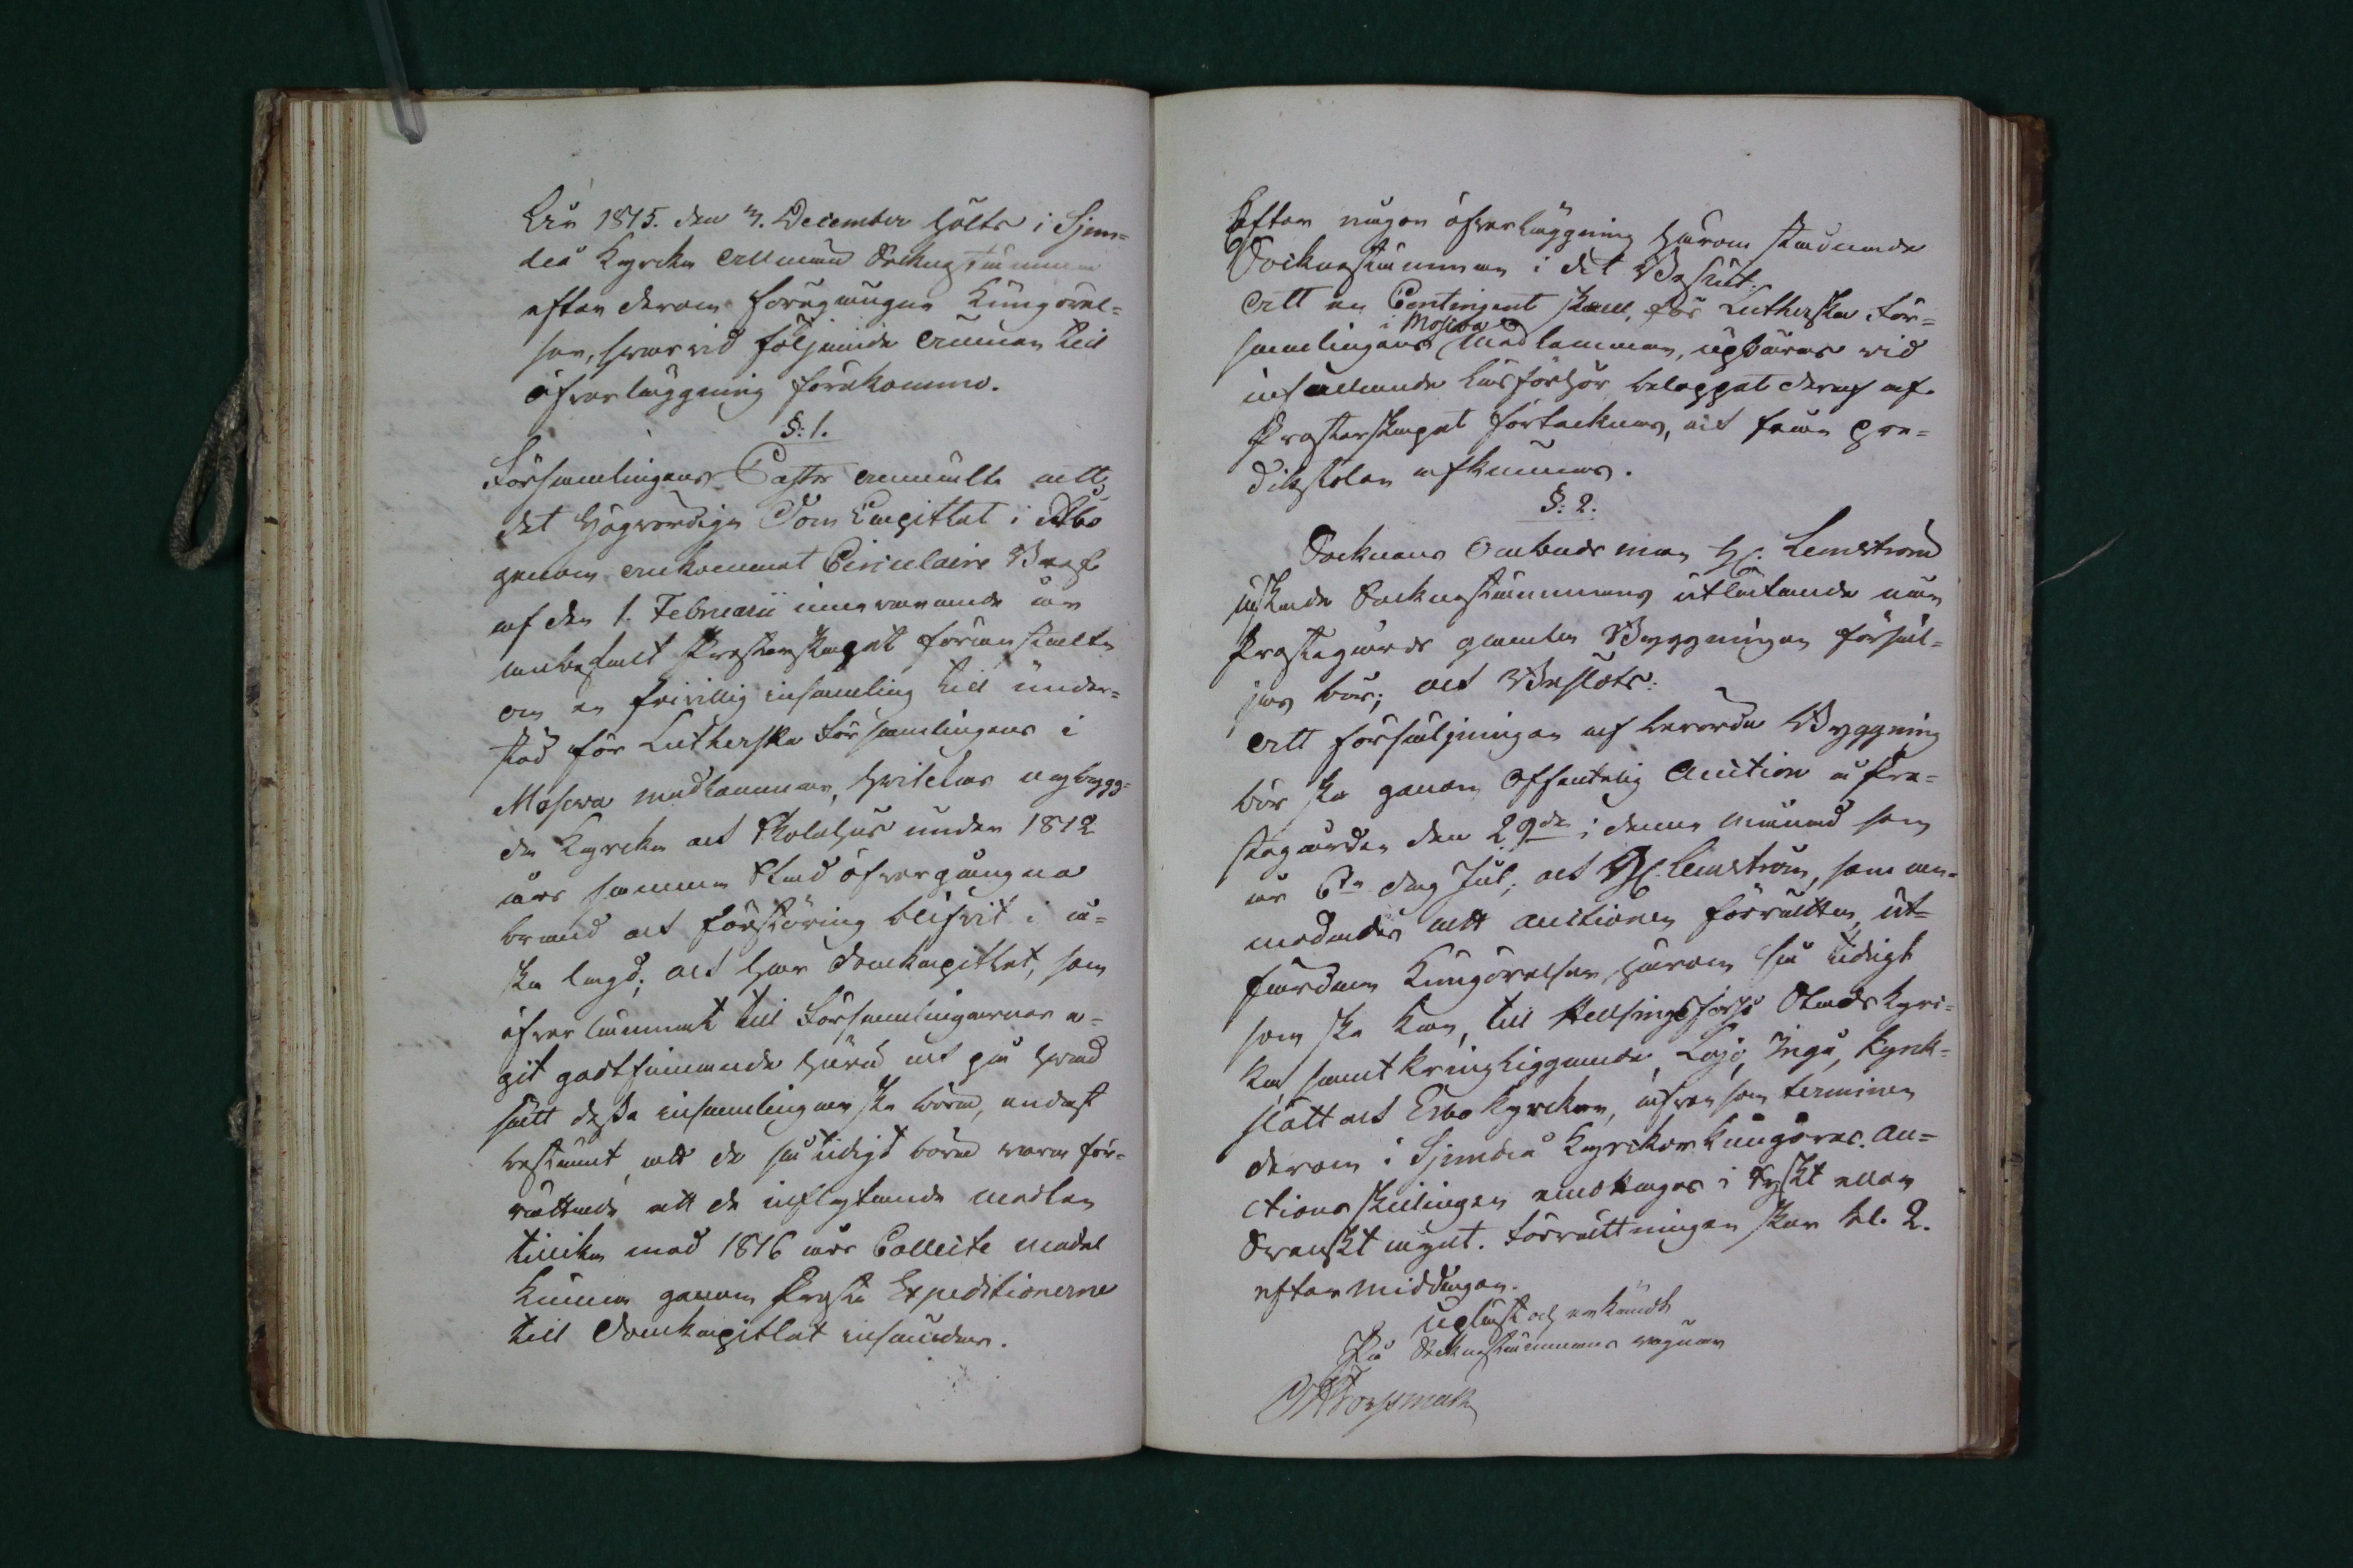 År 1815. den 3. December hölts i Sjun=
deå Kyrcka allmän Socknestämma
efter derom förut gången Kungörel=
se, hvarvid följande ämnen till
öfverläggning förekommo.
§: 1.
Församlingens Pastor anmälte att
det Högvördiga Dom Capitlet i Åbo
genom ankommet Circulaire Bref
af den 1. Februarii innevarande år
anbefalt Presterskapet föranstalta
om en frivillig insamling till under=
stöd för Lutherska Församlingens i
Moscva medlemmar, hvilckas nybygg=
da Kyrcka och Skolehus under 1812
års samma Stad öfvergångna
brand och förstöring blifvit i a=
ska lagd; och har Domkapitlet, som
öfverlämnat till Församlingarnas e=
git godtfinnande huru och på hvad
sätt dessa insamlingar ske böra, endast
bestämt, att de så tidigt böra vara för=
rättade att de inflytande medlen
tillika med 1816 års Collecte medel
kunna genom Prosta Expeditionerne
till Domkapitlet insändas.
Efter någon öfverläggning härom stadnade
Socknestämman i det Beslut:
Att en Contingent skall, för Lutherska För=
samlingens i Moscva Medlemmar, upbäras vid
infallande Läsförhör, beloppet deraf af
Presterskapet förtecknas, och från pre=
dikstolen afkunnas.
§: 2.
Socknens Ombudsman H. Lemström
äskade Socknestämmans utlåtande när
Prestegårds gamla Byggningen försäl=
jas bör; och Beslöts:
Att försäljningen af berörde Byggning
bör ske genom Offentelig Auction å Pre=
stegården den 29de i denna månad som
är 5te dag Jul; och H. Lemström, som an=
modades att auctionen förrätta, ut=
färdar Kungörelsen härom så tidigt
som ske kan, till Helsingfors Stads kyrc=
ka samt kringliggande, Lojo, Ingå, Kyrck=
slätt och Esbo kyrckor, äfven som terminen
derom i Sjundeå Kyrckor kungöres. Au=
ctions skillingen emottages i Ryskt eller
Svenskt mynt. Förrättningen sker kl. 2.
eftermiddagen.
Upläst och erkändt
På Socknestämmans vägnar
Forssman